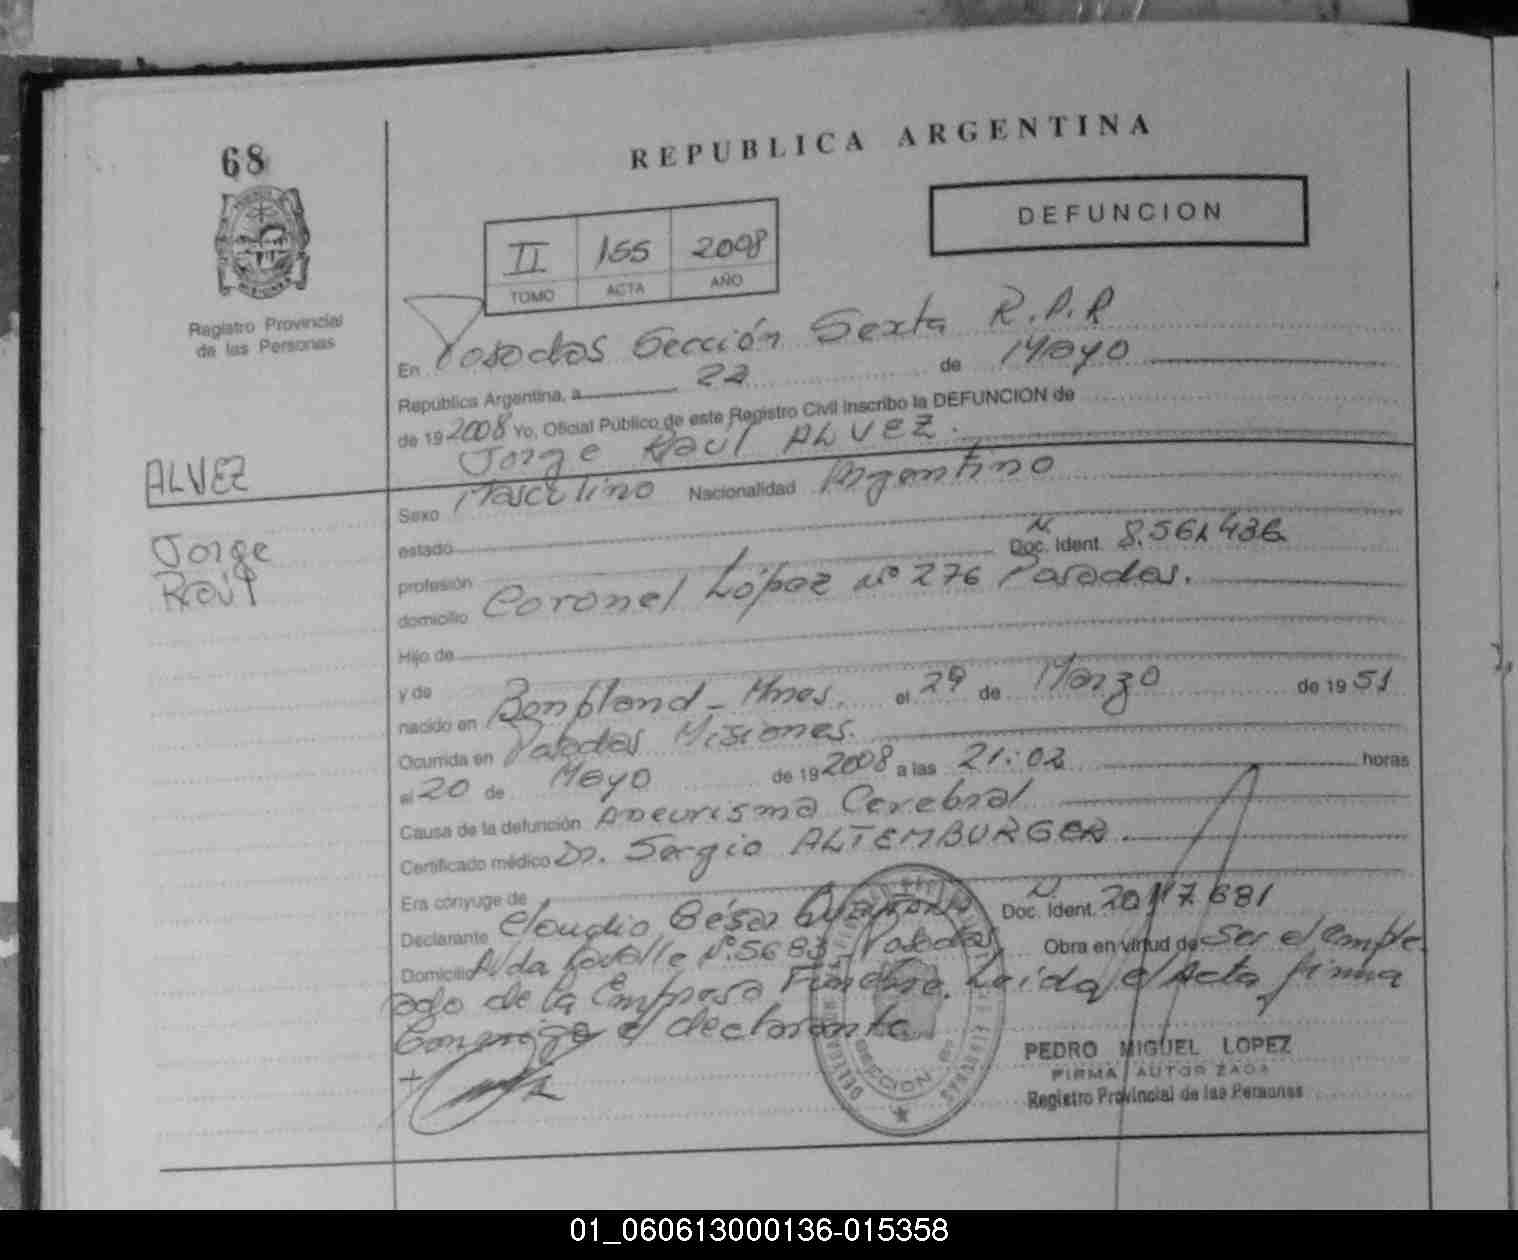 68
REPUBLICA ARGENTINA
DEFUNCION
II 155 2008
TOMO ACTA AÑO
Registro Provincial
de las Personas
En Posadas Sección Sexta R.P.P
República Argentina, a 22 de Mayo
de 19 2008 Yo, Oficial Público de este Registro Civil inscribo la DEFUNCION de
Jorge Raúl ALVEZ.
ALVEZ
Jorge
Raúl
Sexo Masculino Nacionalidad Argentino
estado
profesión Doc. Ident. 8.561.436
domicilio Coronel López Nº 276 Posadas.
Hijo de
y de
nacido en Bonpland - Mnes. el 29 de Marzo de 19 51
Ocurrida en Posadas Misiones.
el 20 de Mayo de 19 2008 a las 21:02 horas
Causa de la defunción Aneurisma Cerebral
Certificado médico Dr. Sergio ALTEMBURGER.
Era cónyuge de
Declarante Claudio César Doc. Ident. 20.117.681
Domicilio Avda Lavalle Nº 5683 Posadas Obra en virtud de ser el emple
ado de la Empresa Fúnebre. Leída el Acta, firma
Conmigo el declarante.
PEDRO MIGUEL LOPEZ
FIRMA AUTORIZADA
Registro Provincial de las Personas
01_060613000136-015358